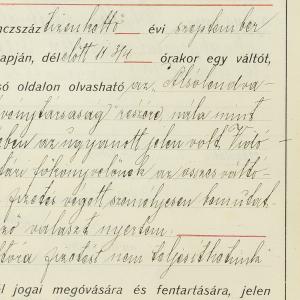 nczszáz tizenhattő évi szeptember
apján, délelőtt 11 3/4 órakor egy váltót,
só oldalon olvasható az „Alsólendva-
vénytársaság” részére nála mint
ében az ugyanott jelen volt
tári főkönyvelőnek az összes váltó-
fizetés végett személyesen bemutat-
ző választ nyertem.
tóra fizetést nem teljesíthetünk
l jogai megóvására és fentartására, jelen